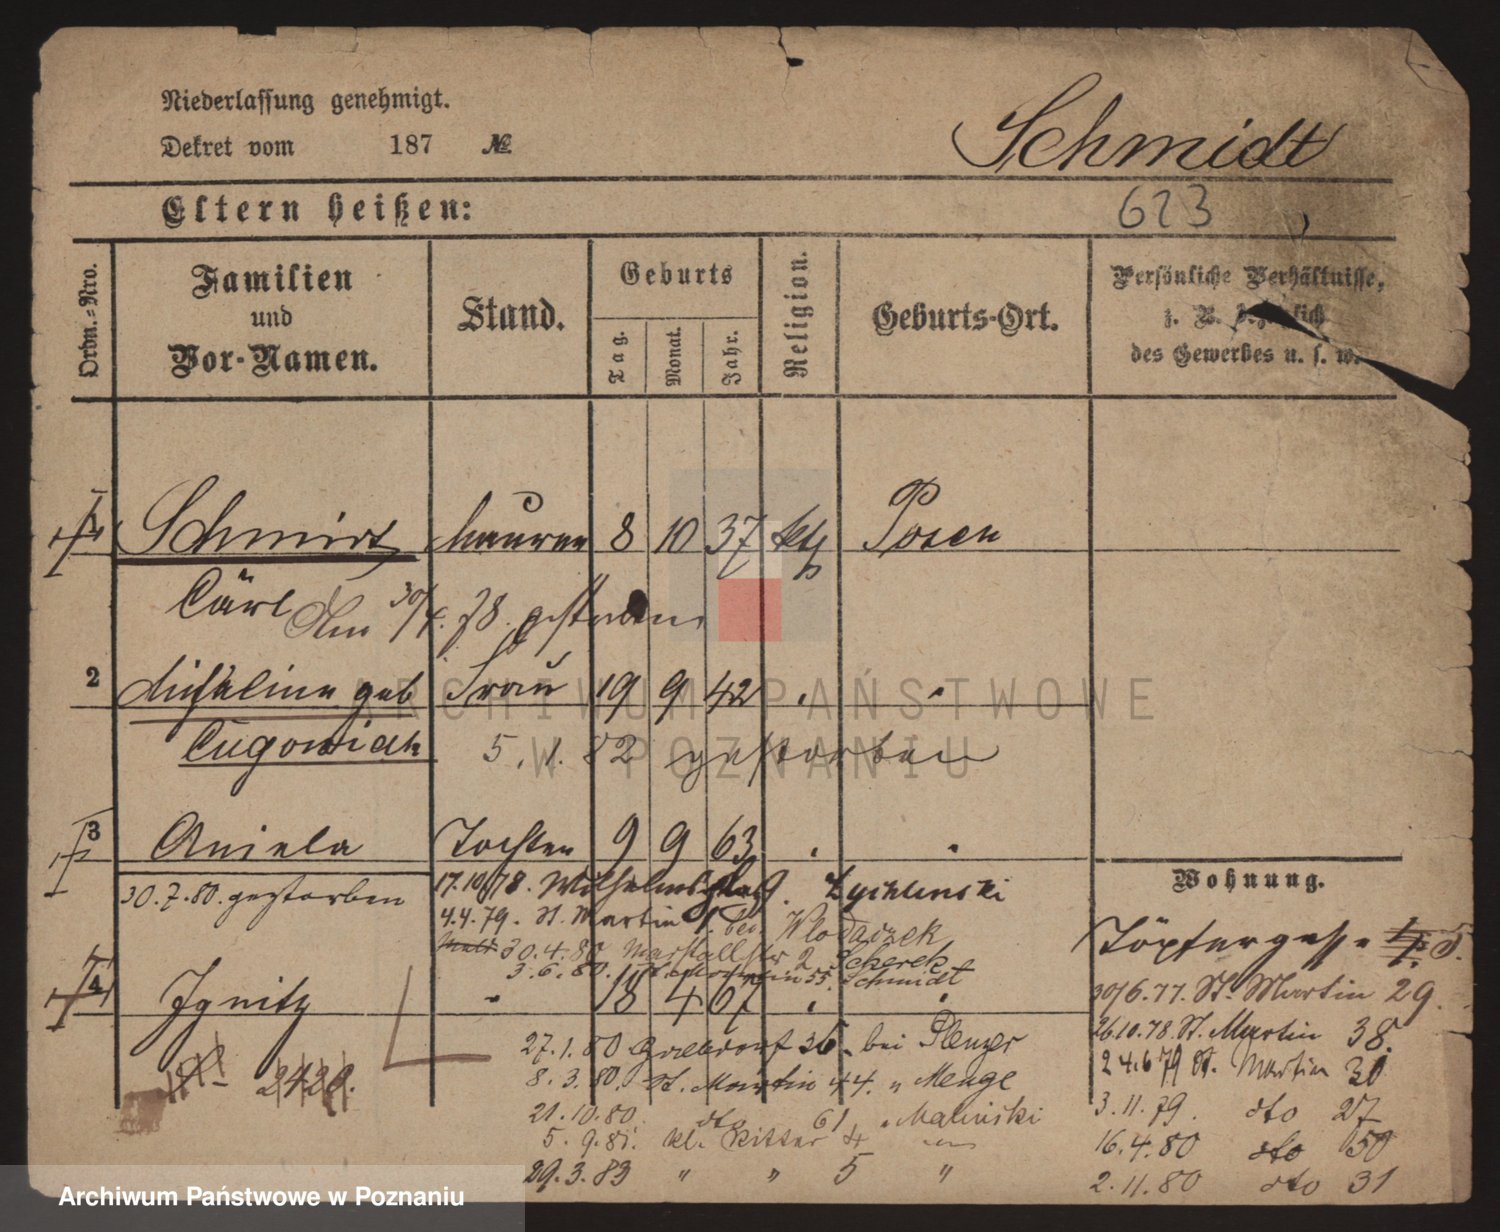 Niederlassung genehmigt.
Dekret vom 187 №
Schmidt
Eltern heißen:
623
Ordn.-Nro.
Familien und Vor-Namen.
Stand.
Geburts
Tag.
Monat.
Jahr.
Religion.
Geburts-Ort.
Persönliche Verhältnisse,
z. B. bezüglich
des Gewerbes u. s. w.
1 Schmidt Maurer 8 10 37 kth Posen
Carl
Am 30/4. 78. gestorben
2 Michaline geb Frau 19 9 42 " "
5. 1. 82 gestorben
3 Aniela Tochter 9 9 63 " "
30.7.80. gestorben
17.10.78. Wilhelmsplatz 9. Zychlinski
4.4.79. St. Martin 1. bei Wlodarzek
30.4.80 Marstallstr 2 Scherek
3.6.80. St. Martin 55. Schmidt
4 Ignitz " 18 4 67 " "
2429.
27.1.80 36. bei Plenzer
8.3.80. St. Martin 44. " Menge
21.10.80. dto 61 " Malinski
5.9.81. kl. Ritter 4 "
29.3.83 " " 5 "
Wohnung.
Töpfergasse 5.
30/6.77. St. Martin 29.
26.10.78. St. Martin 38.
24.6.79 St. Martin 30
3.11.79. dto 27
16.4.80 dto 50
2.11.80 dto 31
ARCHIWUM PAŃSTWOWE
W POZNANIU
Archiwum Państwowe w Poznaniu